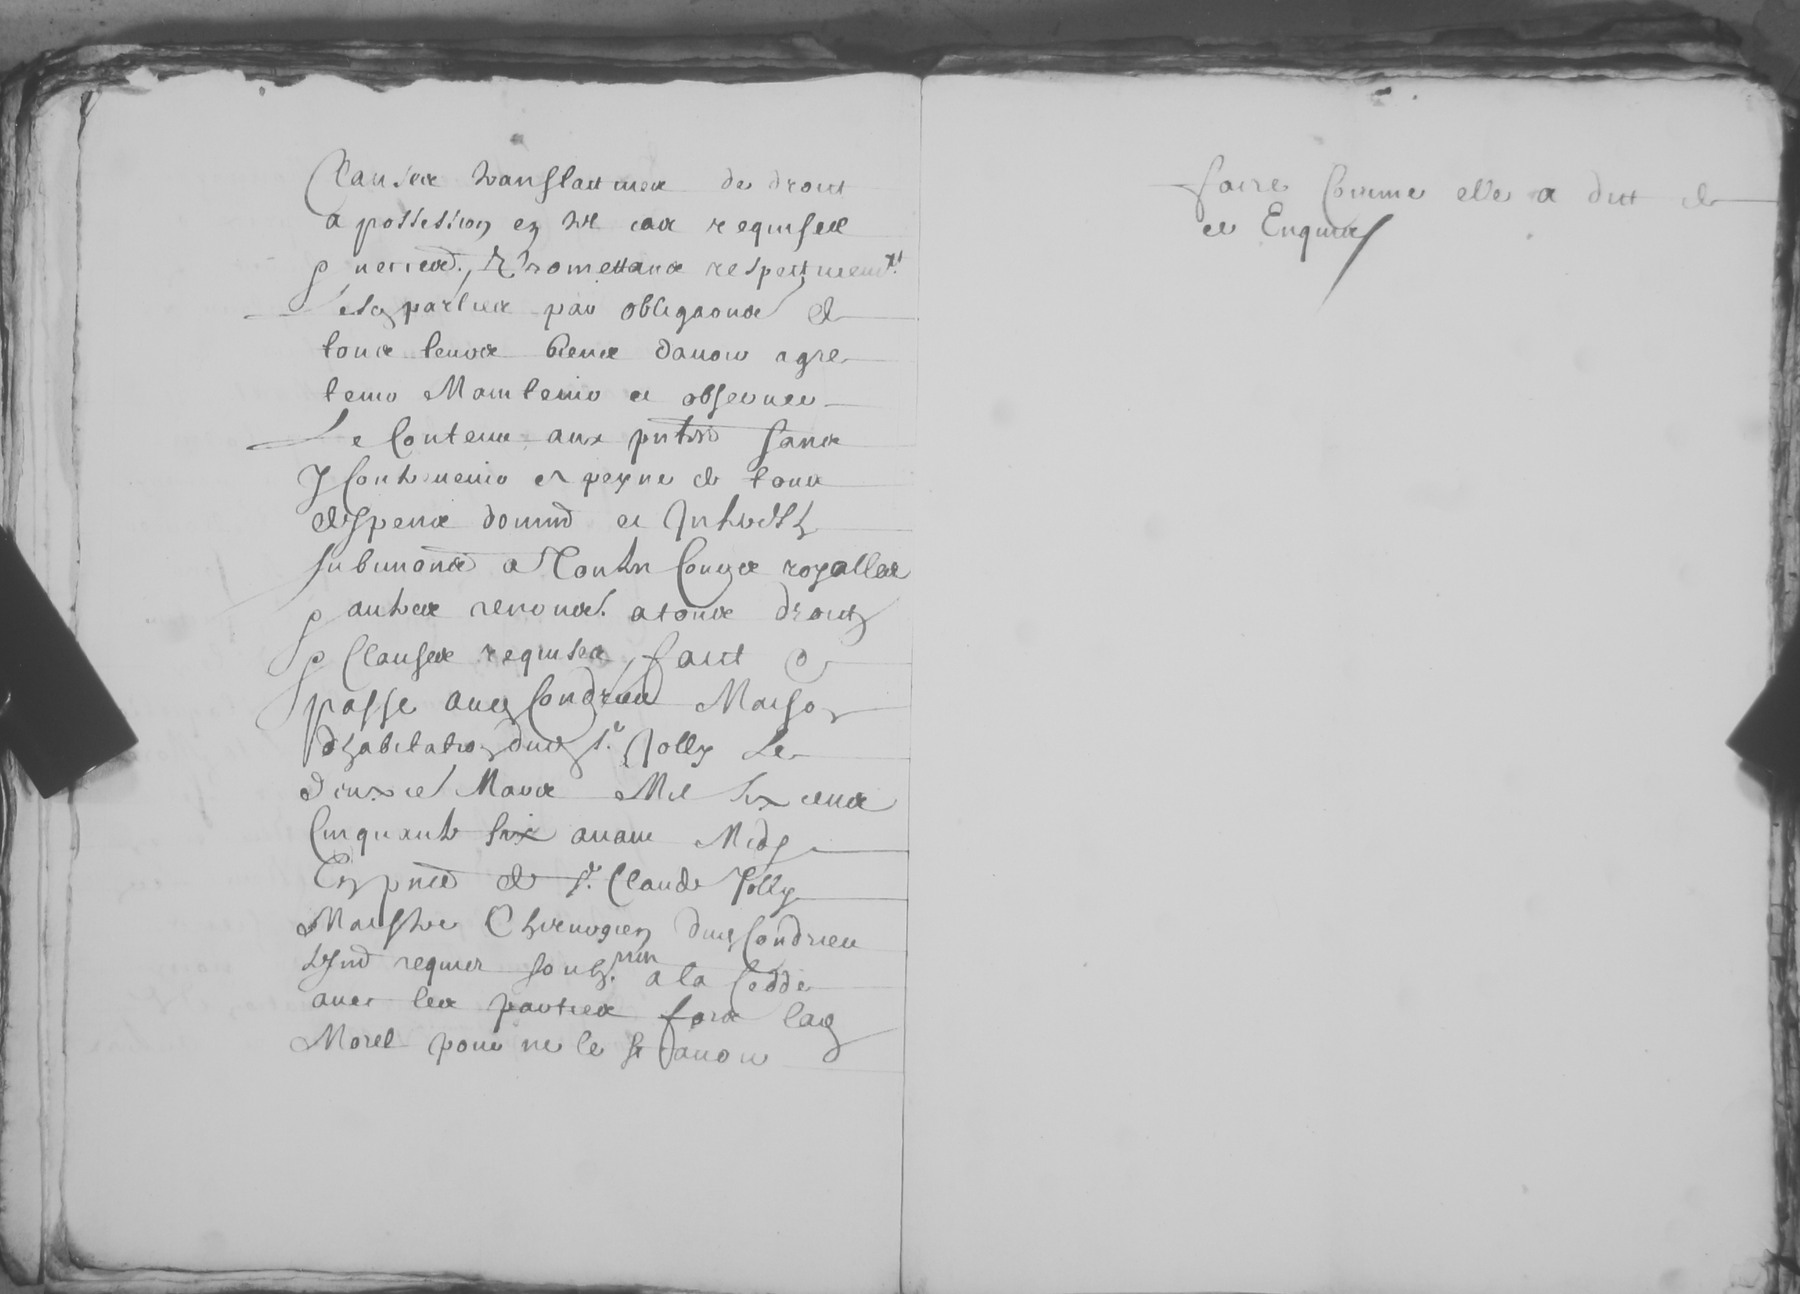 Clauses translatives de droit
& possession en tel cas requises
& necred., Promettans respectivemt.
Les parties par obligaons de
tous leurs biens d'avoir agre
tenir Maintenir et observer
Le Contenu aux pntes sans
y Contrevenir et peyne de tous
despens domm et Intrests
submons a Toutes Cours royalles
& autres renonct. a tous droits
& Clauses requises, faict &
passe aud Condrieu Maison
d'habitation dud Sr. Jolly Le
deuxie Mars Mil six cens
Cinquante six avant Midy
En pnce de Sr. Claude Jolly
Maistre Chirurgien dud Condrieu
requier soubz. a la Cedde
avec les parties fors lad
Morel pour ne le scavoir
faire Comme elle a dict de
ce Enquise